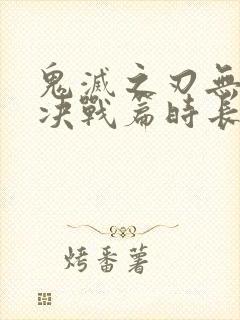 鬼滅之刃無
决戰篇時長
烤番薯